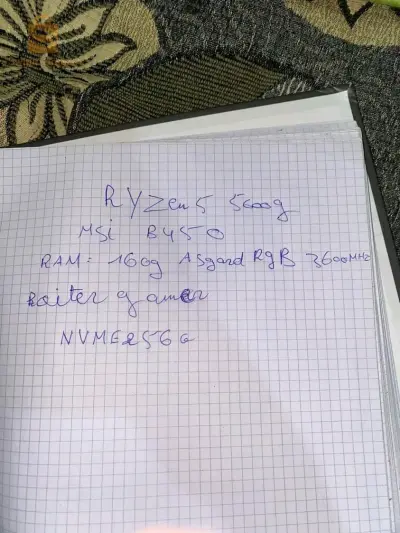 RYZen 5 5600g
MSi B450
RAM: 16Og Asgard RgB 3600MHz
Boiter gamer
NVME256G